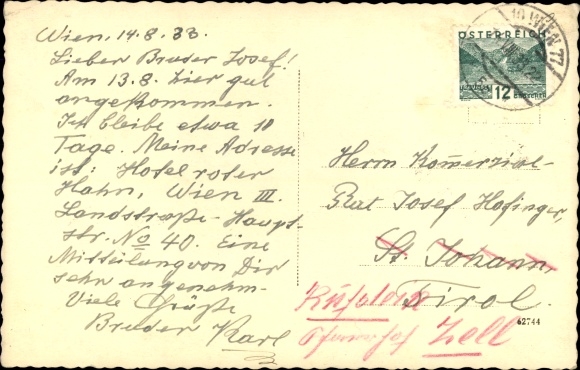 Wien, 14.8.33.
Lieber Bruder Josef!
Am 13.8. hier gut
angekommen.
Ich bleibe etwa 10
Tage. Meine Adresse
ist: Hotel roter
Hahn, Wien III.
Landstraße-Haupt-
str. No 40. Eine
Mitteilung von Dir
sehr angenehm.
Viele Grüße
Bruder Karl
ÖSTERREICH
12
GROSCHEN
WIEN 77
Herrn Kommerzial-
Rat Josef Hofinger,
St. Johann,
Tirol.
Kufstein
Zell
62744